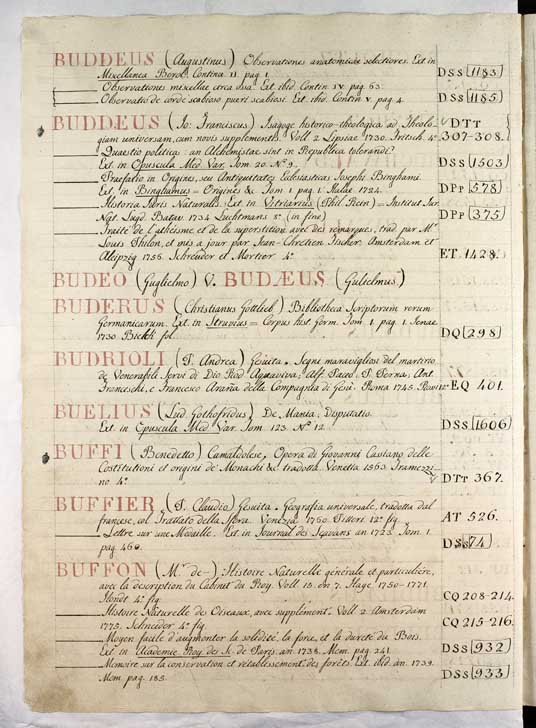 BUDDEUS (Augustinus) Observationes anatomicæ selectiores. Ext in
Mixellanea Berol. Contin. II. pag. 1. DSS 1183
Observationes mixellæ circa ossa. Ext. ibid. Contin. IV. pag. 63.
Observatio de corde scabioso pueri scabiosi. Ext. ibid. Contin. V. pag. 4. DSS 1185
BUDDEUS (Jo: Franciscus) Isagoge historico-theologica ad Theolo- DTT
giam universam, cum novis supplementis. Voll. 2. Lipsiae 1730. Fritsch. 4° 307-308.
Quaestio politica: an Alchemistae sint in Republica tolerandi?
Ext. in Opuscula Med. Var. Tom. 20. N° 9. DSS 1503
Praefatio in Origines, seu Antiquitates Ecclesiasticas Josephi Binghami.
Ext. in Binghamus = Origines &c Tom. 1. pag. 1. Halae 1724. DPP 578
Historia Juris Naturalis. Ext. in Vitriarius (Phil. Rein) = Institut. Jur.
Nat. Lugd. Batav. 1734. Luchtmans 8° (in fine) DPP 375
Traité de l'athéisme et de la superstition avec des remarques, trad. par M.r
Louis Philon, et mis a jour par Jean-Chretien Fischer. Amsterdam et
Aleipzig 1756. Schreuder et Mortier 4° ET. 1428.
BUDEO (Guglielmo) V. BUDÆUS (Gulielmus)
BUDERUS (Christianus Gottlieb) Bibliotheca Scriptorum rerum
Germanicarum. Ext. in Struvius = Corpus hist. Germ. Tom. 1. pag. 1. Jenae
1730. Bielck. fol. DQ 298
BUDRIOLI (P. Andrea) Gesuita. Segni maravigliosi del martirio
de Venerabili Servi di Dio Rod. Aquaviva; Alf. Paceo; P. Berna; Ant.
Franceschi, e Francesco Arana della Compagnia di Gesù. Roma 1745. EQ 401.
BUELIUS (Lud. Gothofridus) De Mania; Disputatio.
Ext. in Opuscula Med. Var. Tom. 123. N° 12. DSS 1606
BUFFI (Benedetto) Camaldolese, Opera di Giovanni Cassiano delle
Costitutioni et origini de' Monachi &c tradotta. Venetia 1563. Tramezzi-
no 4° DTT 367.
BUFFIER (P. Claudio) Gesuita. Geografia universale, tradotta dal
francese, col Trattato della Sfera. Venezia 1760. Pitteri. 12° fig. AT 526.
Lettre sur une Medaille. Ext. in Journal des Sçavans an. 1723. Tom. 1.
pag. 460. DSS 74
BUFFON (M.r de-) Histoire Naturelle générale et particuliére,
avec la description du Cabinet du Roy. Voll. 15. en 7. Haye 1750-1771.
Hondt. 4° fig. CQ 208-214.
Histoire Naturelle de Oiseaux, avec supplément. Voll. 2. Amsterdam
1775. Schneider 4° fig. CQ 215-216.
Moyen facile d'augmenter la solidité, la force, et la dureté du Bois.
Ext. in Academie Roy. des Sc. de Paris. an. 1738. Mem. pag. 241. DSS 932
Memoire sur la conservation et retablissement des forêts. Ext. ibid. an. 1739.
Mem. pag. 185. DSS 933